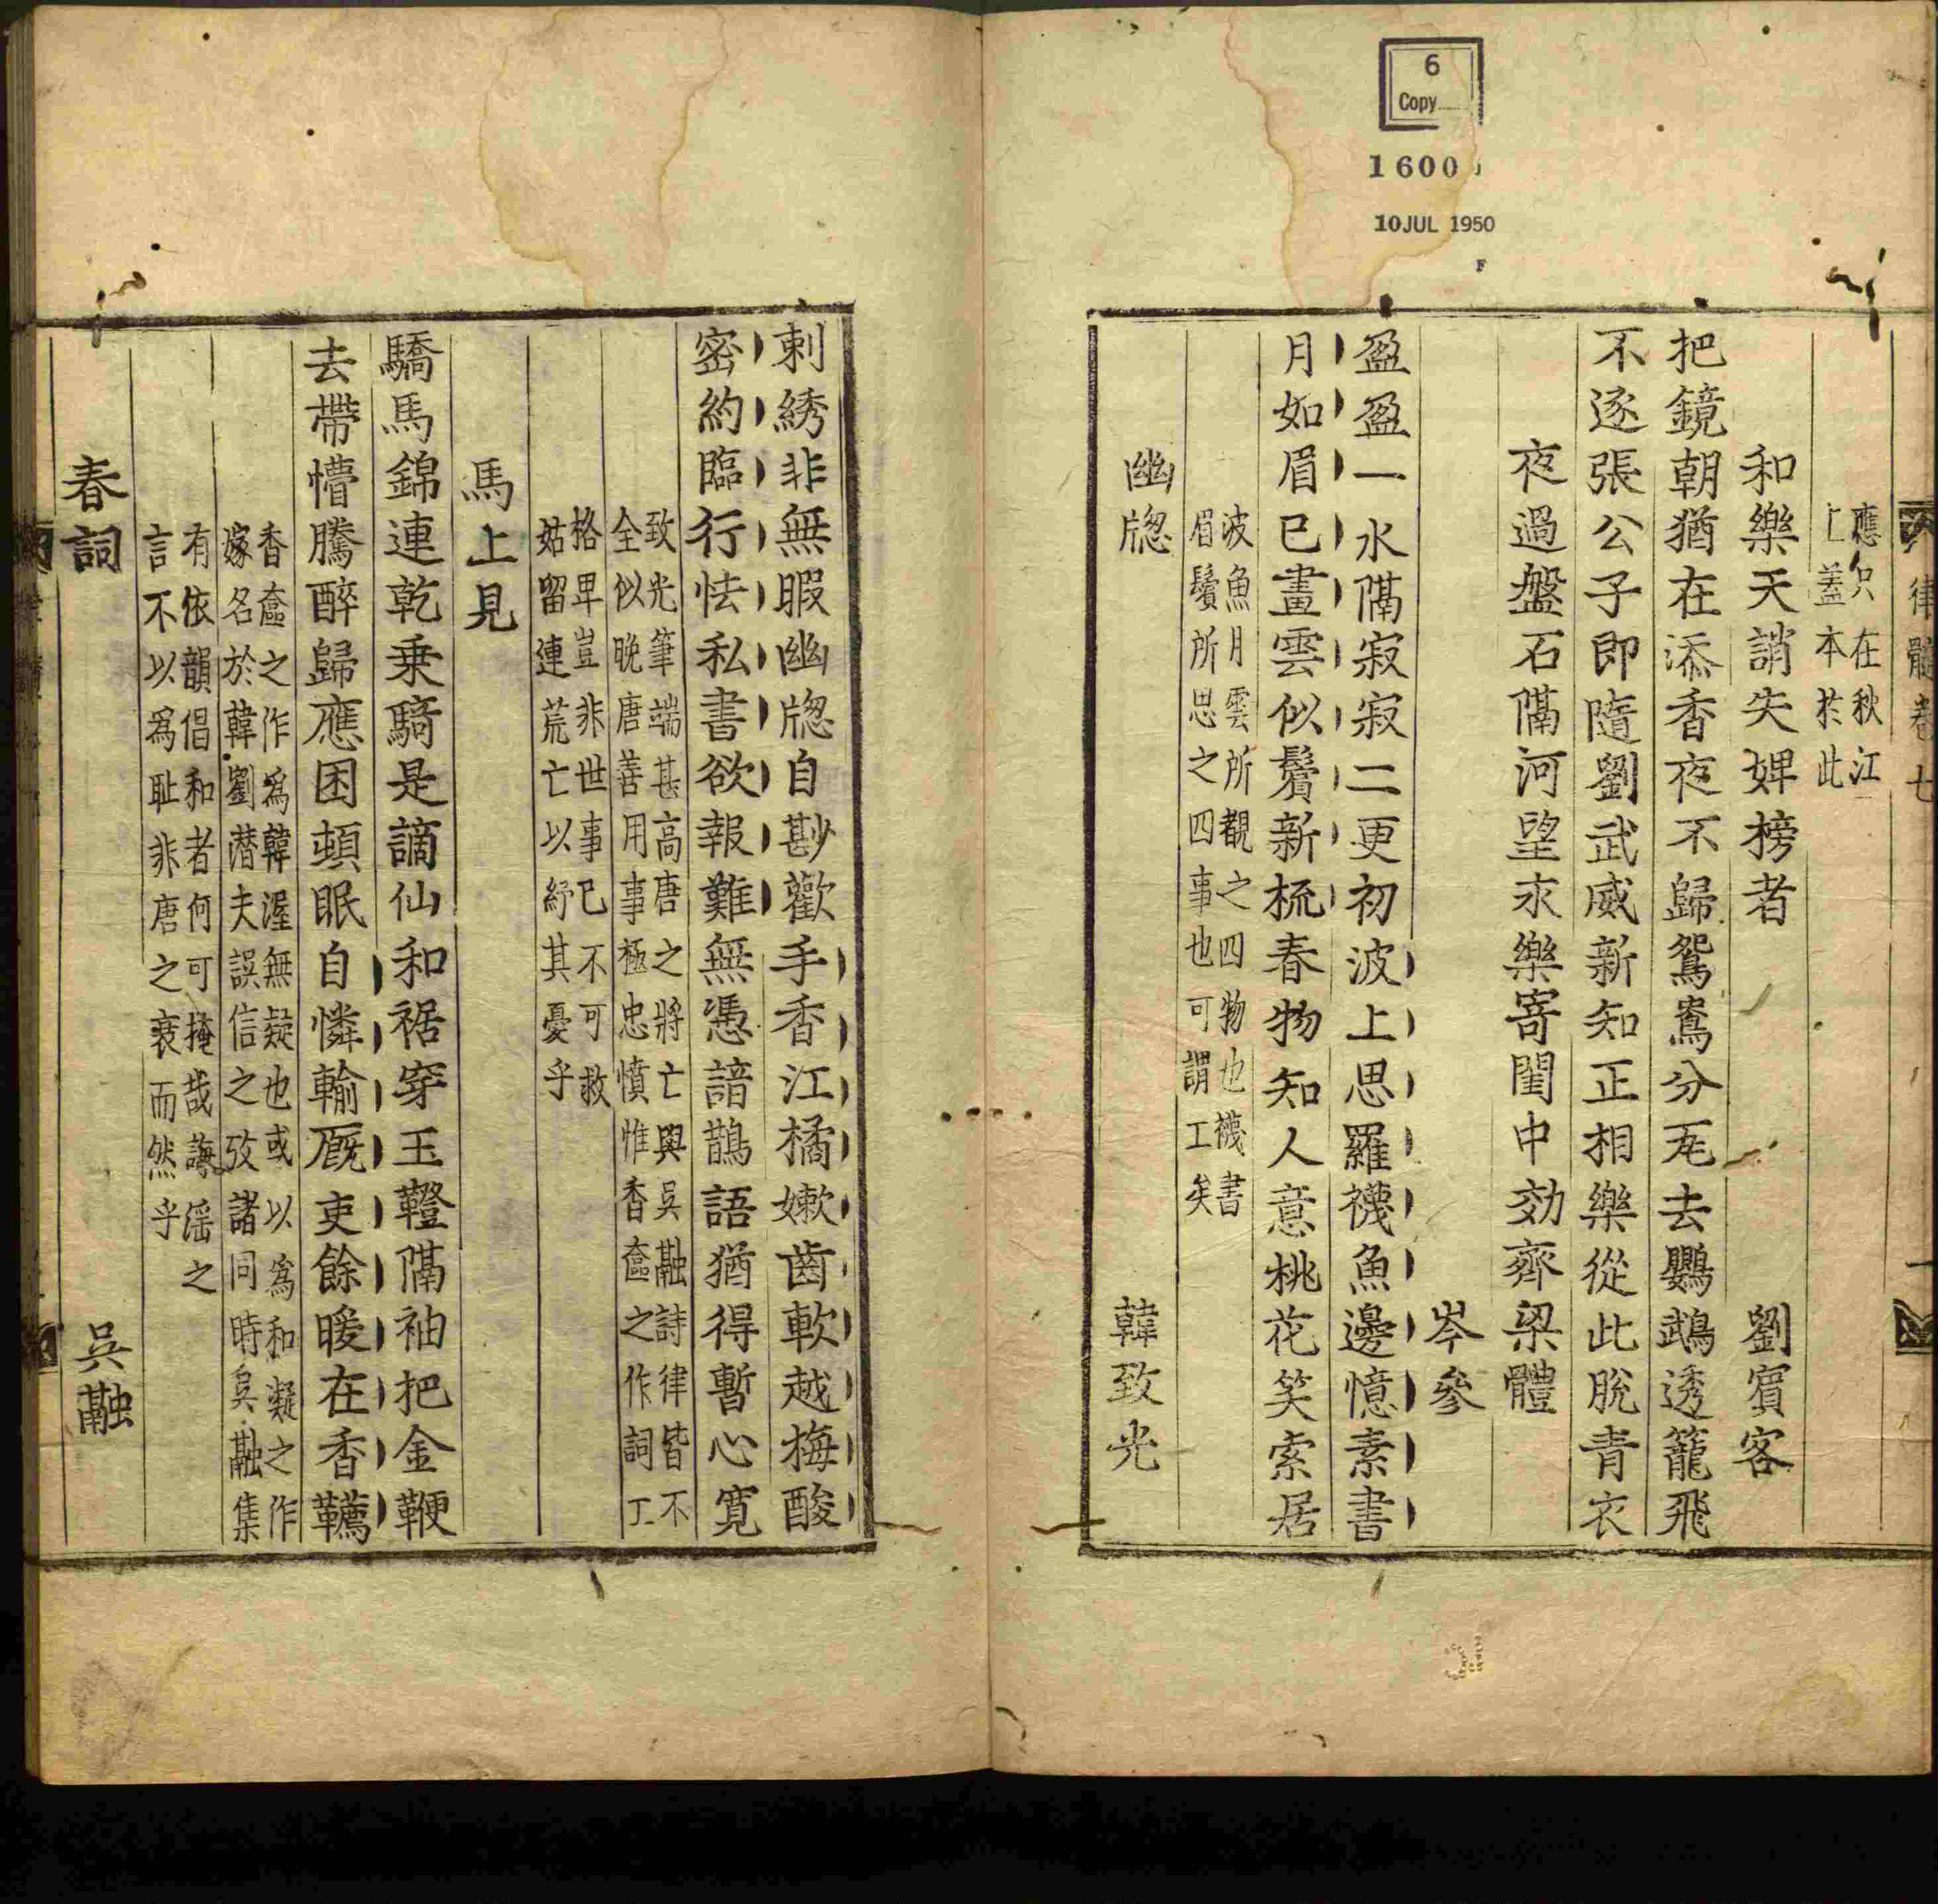 6
Copy
1600
10JUL 1950
F
律髓卷七
應只在秋江
上蓋本於此
和樂天誚失婢榜者　劉賓客
把鏡朝猶在添香夜不歸鴛鴦分瓦去鸚鵡透籠飛
不逐張公子即隨劉武威新知正相樂從此脫青衣
夜過盤石隔河望永樂寄閨中効齊梁體
岑參
盈盈一水隔寂寂二更初波上思羅襪魚邊憶素書
月如眉已畫雲似鬢新梳春物知人意桃花笑索居
波魚月雲所覩之四物也襪書
眉鬢所思之四事也可謂工矣
幽牕　韓致光
刺綉非無暇幽牕自尠歡手香江橘嫩齒軟越梅酸
密約臨行怯私書欲報難無憑諳鵲語猶得暫心寬
致光筆端甚高唐之將亡與吳融詩律皆不
全似晚唐善用事極忠憤惟香奩之作詞工
格卑豈非世事已不可救
姑留連荒亡以紓其憂乎
馬上見
驕馬錦連乾乗騎是謫仙和裾穿玉鐙隔袖把金鞭
去帶懵騰醉歸應困頓眠自憐輸廐吏餘暖在香韉
香奩之作爲韓渥無疑也或以爲和凝之作
嫁名於韓劉潜夫誤信之攷諸同時吳融集
有依韻倡和者何可掩哉誨淫之
言不以爲耻非唐之衰而然乎
春詞　吳融